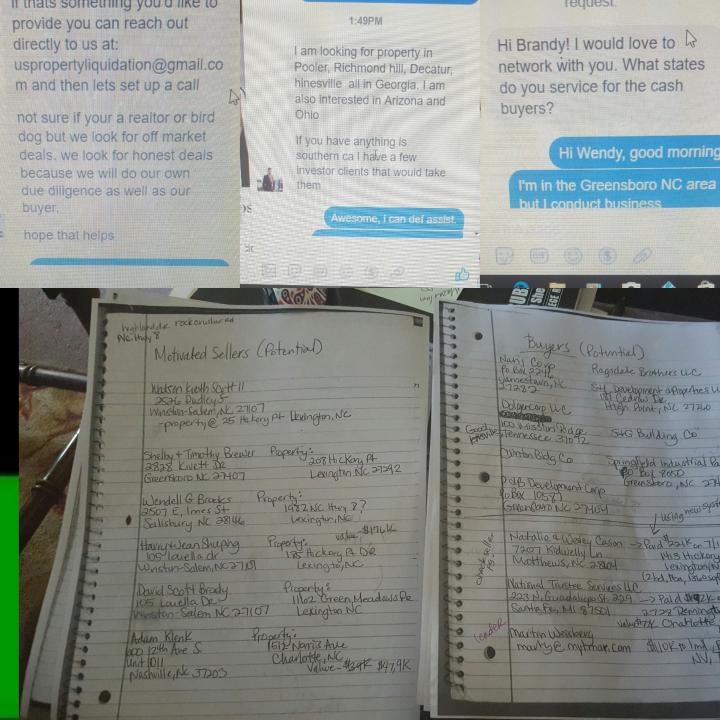 if thats something you'd like to
provide you can reach out
directly to us at:
uspropertyliquidation@gmail.co
m and then lets set up a call
not sure if your a realtor or bird
dog but we look for off market
deals. we look for honest deals
because we will do our own
due diligence as well as our
buyer.
hope that helps
1:49PM
I am looking for property in
Pooler, Richmond hill, Decatur,
hinesville all in Georgia. I am
also interested in Arizona and
Ohio
If you have anything is
southern ca I have a few
investor clients that would take
them
Awesome, i can def assist.
request.
Hi Brandy! I would love to
network with you. What states
do you service for the cash
buyers?
Hi Wendy, good morning
I'm in the Greensboro NC area
but I conduct business
GIF
NC Hwy 8
Motivated Sellers (Potential)
Watson Keith Scott II
2526 Dudley S
Winston-Salem, NC 27107
-property @ 25 Hickory Pt Lexington, NC
Shelby + Timothy Brewer Property:
2828 Kivett DR 208 Hickory Pt
Greensboro NC 27407 Lexington NC 27292
Wendell G Brooks Property:
2507 E, Innes St 1982 NC Hwy 8?
Salisbury NC 28146 Lexington, NC
value $176K
Harry + Jean Shuping Property:
105 Lavella dr 185 Hickory Pt DR
Winston-Salem, NC 27107 Lexington, NC
David Scott Brady Property:
105 Lavella DR 1162 Green Meadows
Winston-Salem NC 27107 Lexington NC
Adam Klenk Property:
600 12th Ave S 1512 Norris Ave
Unit 1011 Charlotte, NC
Nashville, NC 37203 Value - $39K $47.9K
Buyers (Potential)
Corp
PO Box 2246
Jamestown, NC
27282
Ragsdale Brothers LLC
S+G Development + Properties LL
Cedrow Dr
High Point, NC 27260
Dolgencorp LLC
100 Mission Ridge
Tennessee 37072
S+G Building Co
Dunton Bldg Co
Springfield Industrial Pa
PO Box 8050
Greensboro, NC 274
Development Corp
PO Box 10587
Greensboro NC 27404
using new syste
Natalie + Wesley Cason → Paid $221K on 7/1
7207 Kidwelly Ln 1413 Hickory
Matthews, NC 28104 Lexington
National Trustee Services LLC
223 N, Guadalupe St 229 → Paid
Santa Fe, 87501 2728
Charlotte,
Lender
Martin Weisberg
marty@mybmar.com $110K to 1 mil